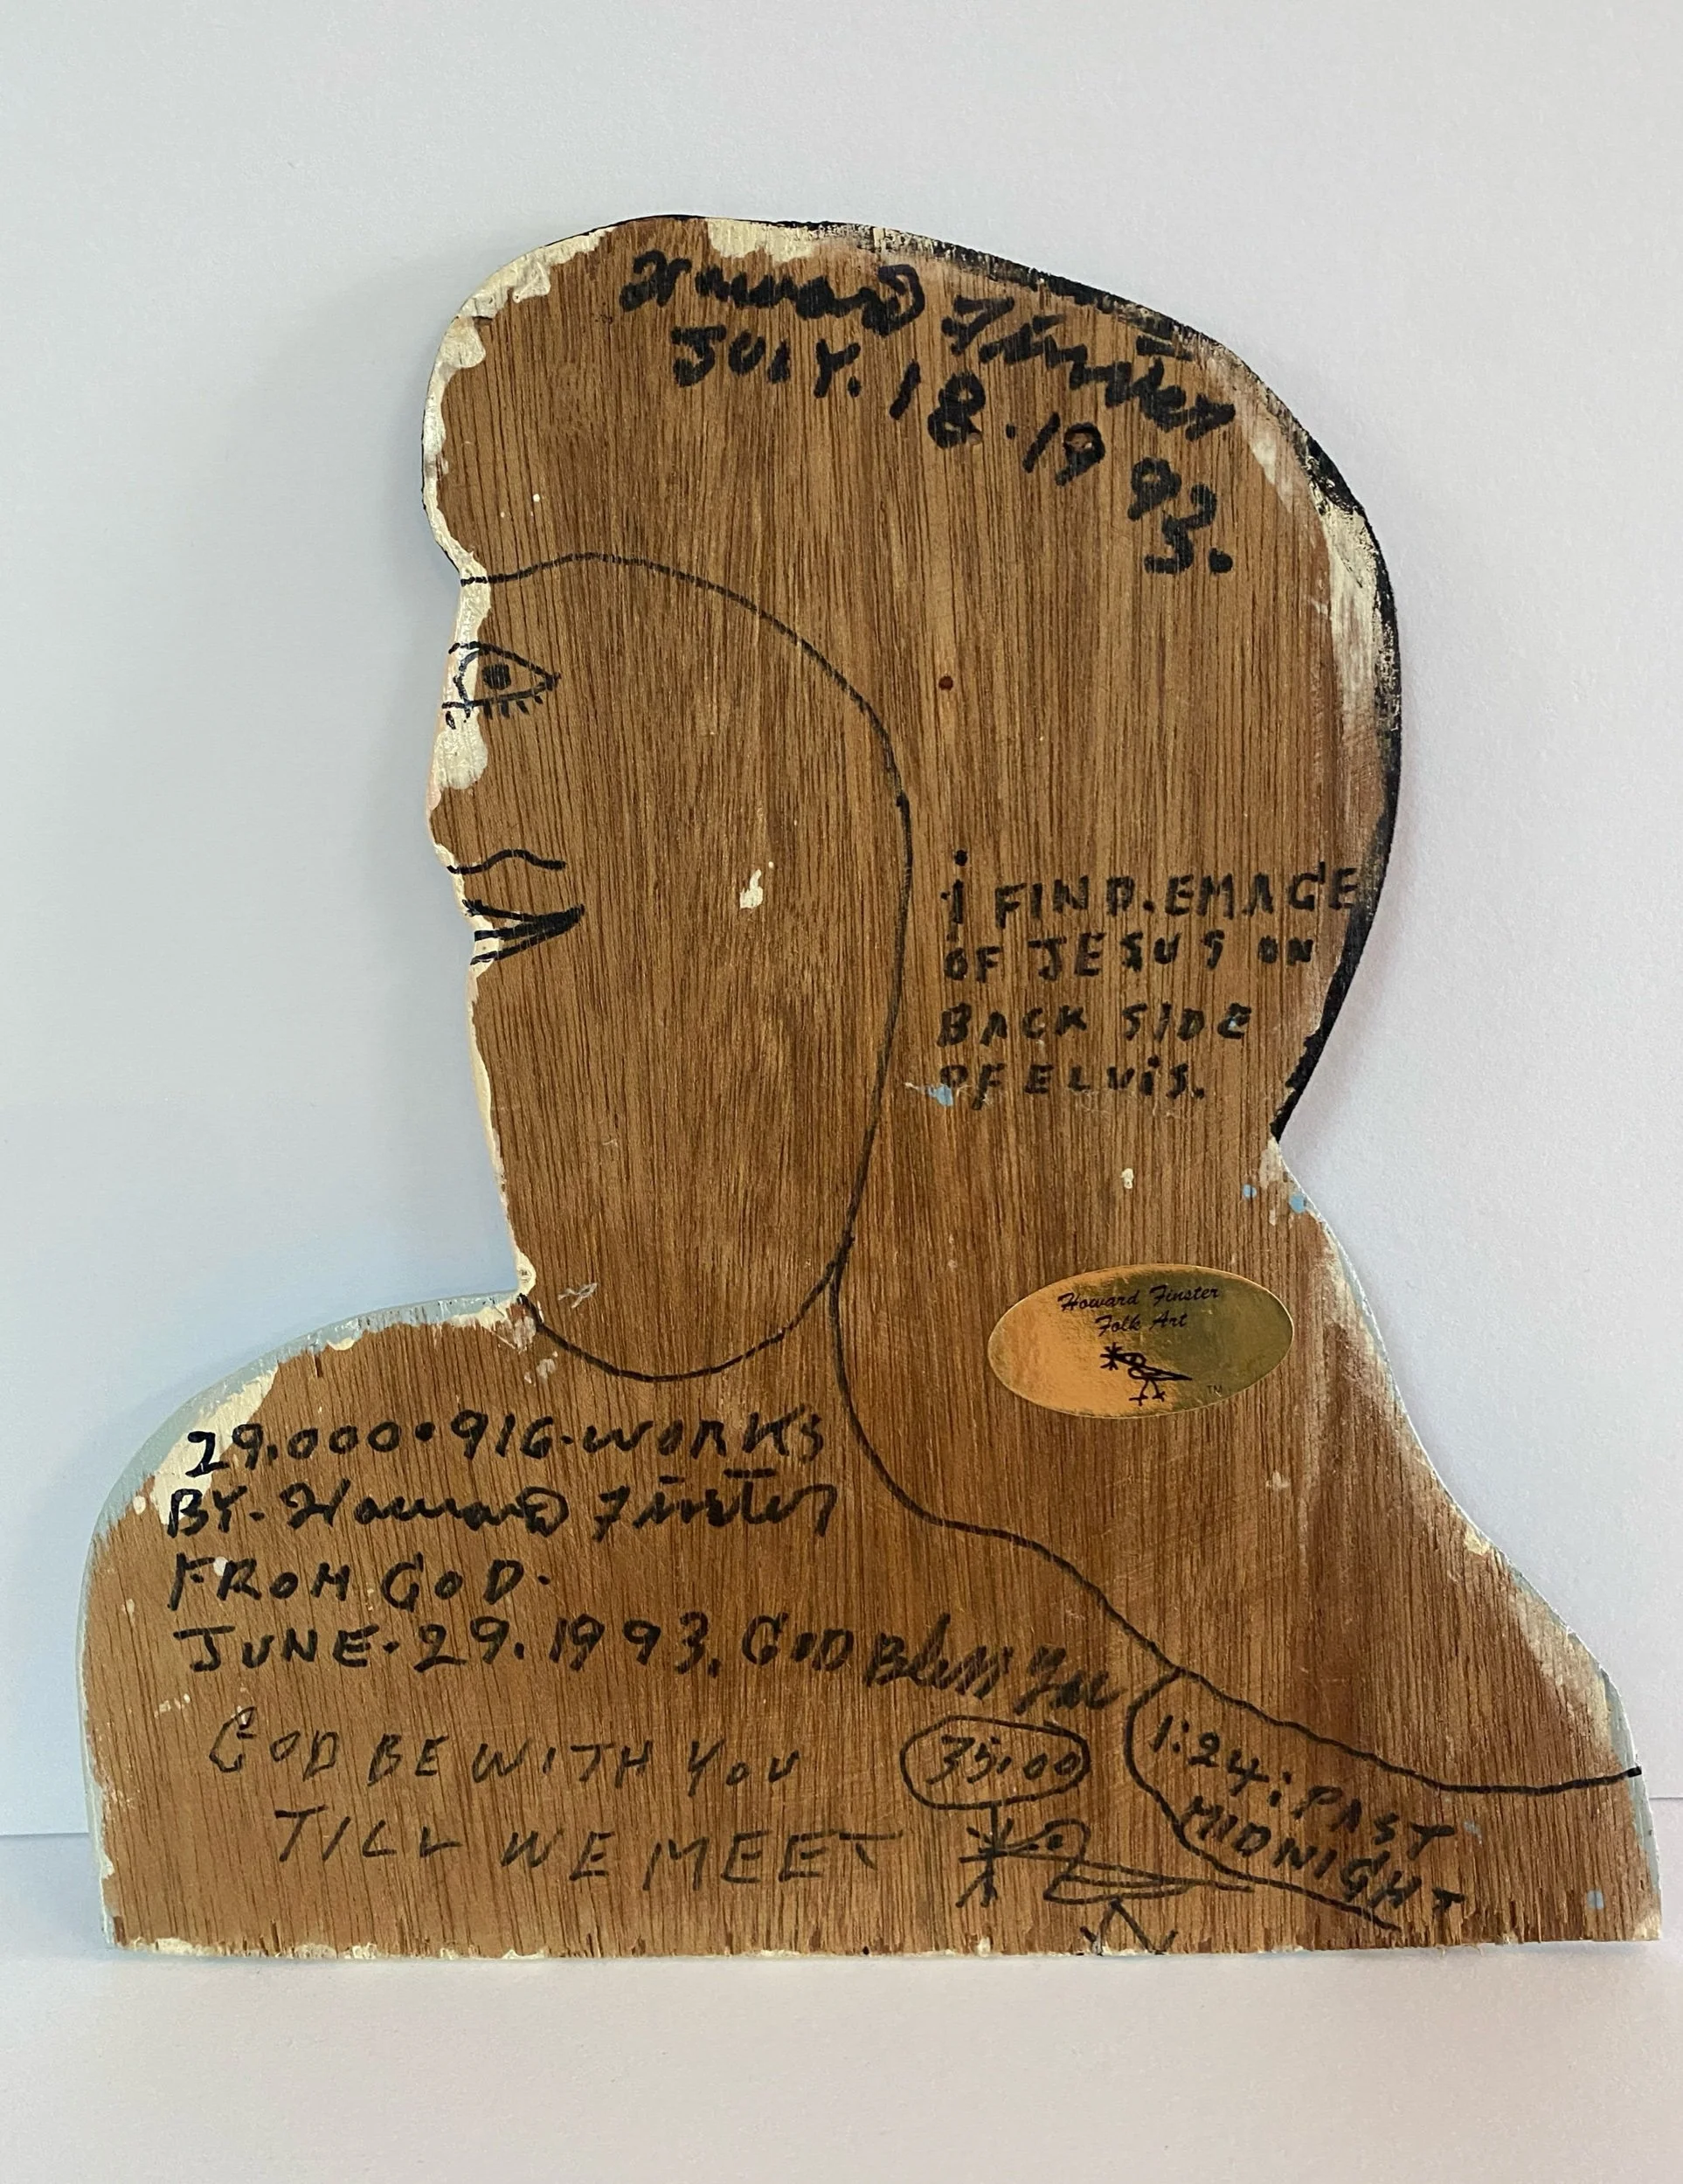 Howard Finster
JULY.18.1993.
i FIND.EMAGE
OF JESUS ON
BACK SIDE
OF ELViS.
Howard Finster
Folk Art
TM
29.000.916.WORKS
BY. Howard Finster
FROM GOD.
JUNE.29.1993. GOD Bless You
GOD BE WITH YOU
TILL WE MEET
35.00
1:24: PAST
MIDNIGHT